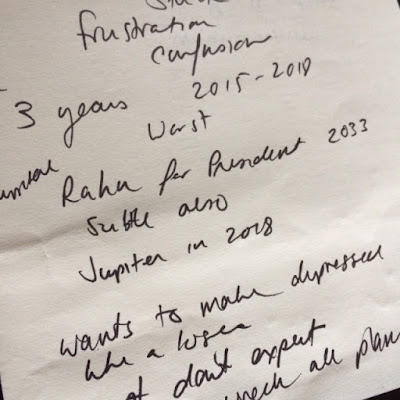 frustration
confusion
3 years 2015-2018
Worst
Rahu for President 2033
Subtle also
Jupiter in 2018
wants to make depressed
like a loser
don't expect
all plan